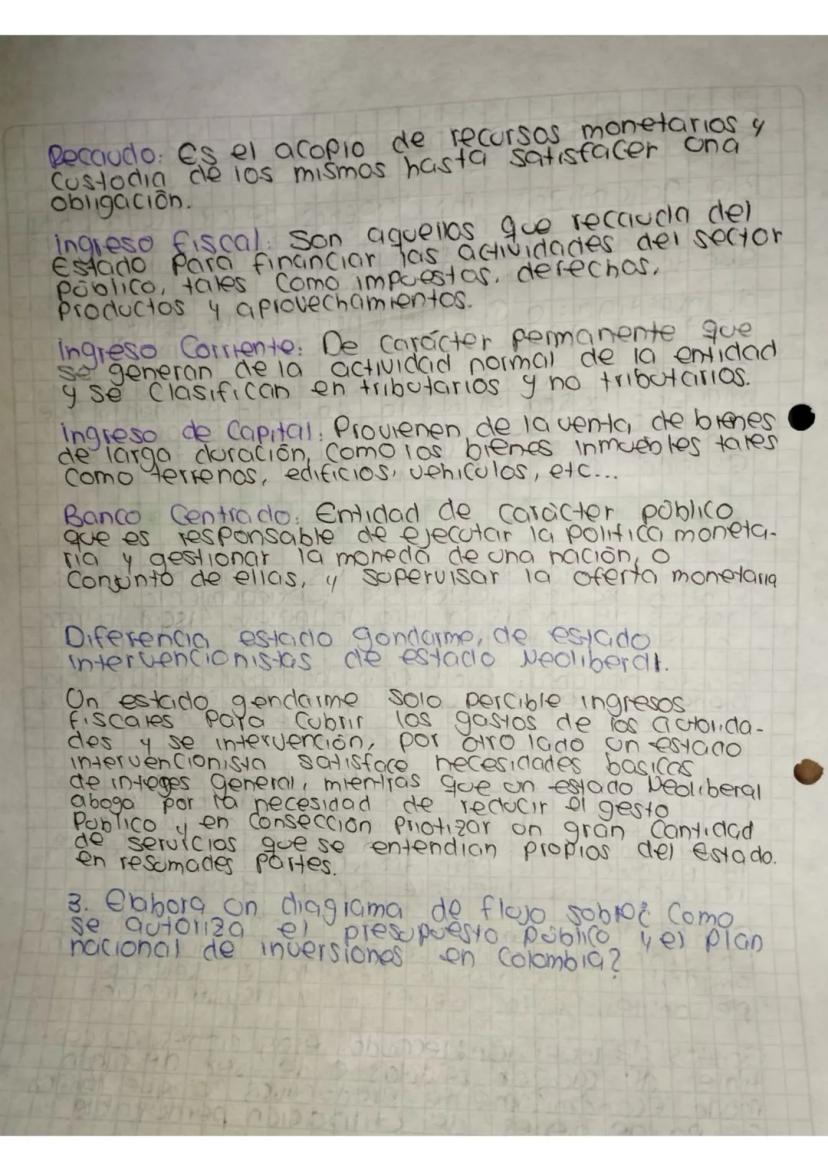 Recaudo: Es el acopio de recursos monetarios y
custodia de los mismos hasta satisfacer una
obligación.
ingreso fiscal: Son aquellos que reccauda del
Estado para financiar las actividades del sector
público, tales como impuestos, derechos,
productos y aprovechamientos.
ingreso Corriente: De carácter permanente que
se generan de la actividad normal de la entidad
y se clasifican en tributarios y no tributarios.
ingreso de Capital: Provienen de la venta de bienes
de larga duración, como los bienes inmuebles tales
como terrenos, edificios, vehiculos, etc...
Banco Centrado: Entidad de carácter público
que es responsable de ejecutar la politica moneta-
ria y gestionar la moneda de una nación, o
Conjunto de ellas, y supervisar la oferta monetaria
Diferencia estado gondarme, de estado
intervencionistas de estado Neoliberal.
Un estado gendarme solo percible ingresos
fiscales para cubrir los gastos de los activida-
des y se intervención, por otro lado un estado
intervencionista satisface necesidades basicas
de interes general, mientras que un estado Neoliberal
aboga por la necesidad de reducir el gesto
Publico y en consección Priotizar un gran Cantidad
de servicios que se entendian propios del Estado.
en resumades partes.
3. Elabora un diagrama de flujo sobre como
se autoriza el presupuesto público y el plan
nacional de inversiones en Colombia?